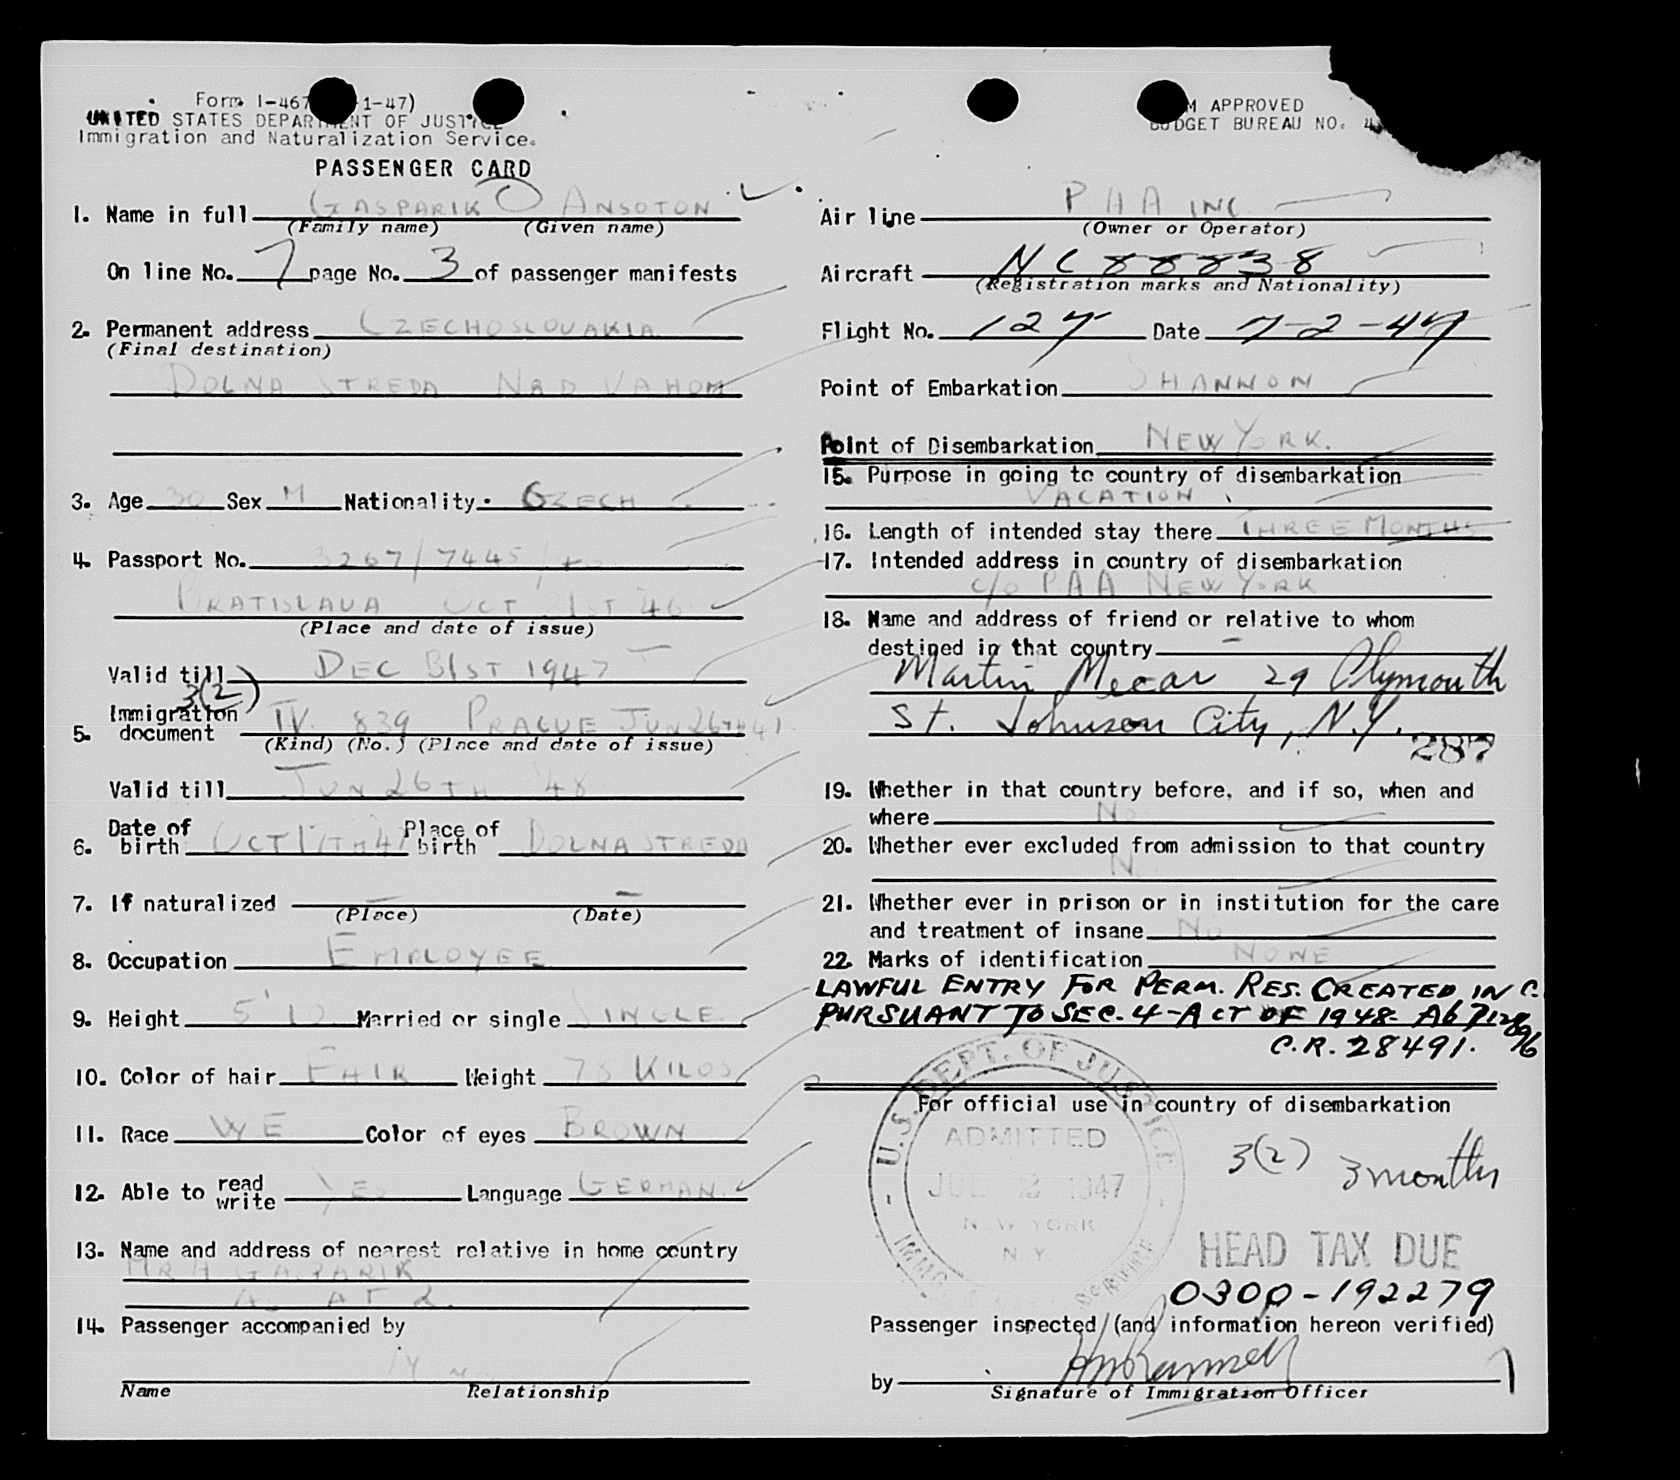 Form I-467 1-47)
UNITED STATES DEPARTMENT OF JUSTICE
Immigration and Naturalization Service.
PASSENGER CARD
1. Name in full GASPARIK ANSOTON
(Family name) (Given name)
On line No. 7 page No. 3 of passenger manifests
2. Permanent address CZECHOSLOVAKIA
(Final destination)
DOLNA STREDA NAD VAHOM
3. Age 30 Sex M Nationality CZECH
4. Passport No. 3267/7445/
BRATISLAVA OCT 31ST 46
(Place and date of issue)
Valid till DEC 31ST 1947
3(2)
5. Immigration document TV. 839 PRAGUE JUN 26TH 47
(Kind) (No.) (Place and date of issue)
Valid till JUN 26TH 48
6. Date of birth OCT 17TH 47 Place of birth DOLNA STREDA
7. If naturalized — —
(Place) (Date)
8. Occupation EMPLOYEE
9. Height 5'10 Married or single SINGLE
10. Color of hair FAIR Weight 75 KILOS
11. Race WE Color of eyes BROWN
12. Able to read write YES Language GERMAN.
13. Name and address of nearest relative in home country
MR A GASPARIK
AS AT 2.
14. Passenger accompanied by
Name Relationship
M APPROVED
BUDGET BUREAU NO. 4
Air line PAA INC
(Owner or Operator)
Aircraft NC 88838
(Registration marks and Nationality)
Flight No. 127 Date 7-2-47
Point of Embarkation SHANNON
Point of Disembarkation NEW YORK.
15. Purpose in going to country of disembarkation
VACATION
16. Length of intended stay there THREE MONTHS
17. Intended address in country of disembarkation
c/o PAA NEW YORK
18. Name and address of friend or relative to whom
destined in that country —
Martin Mecar 29 Plymouth
St. Johnson City, N.Y.
287
19. Whether in that country before, and if so, when and
where No
20. Whether ever excluded from admission to that country
No
21. Whether ever in prison or in institution for the care
and treatment of insane No
22. Marks of identification NONE
LAWFUL ENTRY FOR PERM. RES. CREATED IN C.
PURSUANT TO SEC. 4-ACT OF 1948-
C.R. 28491.
For official use in country of disembarkation
U.S. DEPT. OF JUSTICE
ADMITTED
JUL 1947
NEW YORK
N.Y.
3(2) 3 months
HEAD TAX DUE
0300-192279
Passenger inspected (and information hereon verified)
by
Signature of Immigration Officer